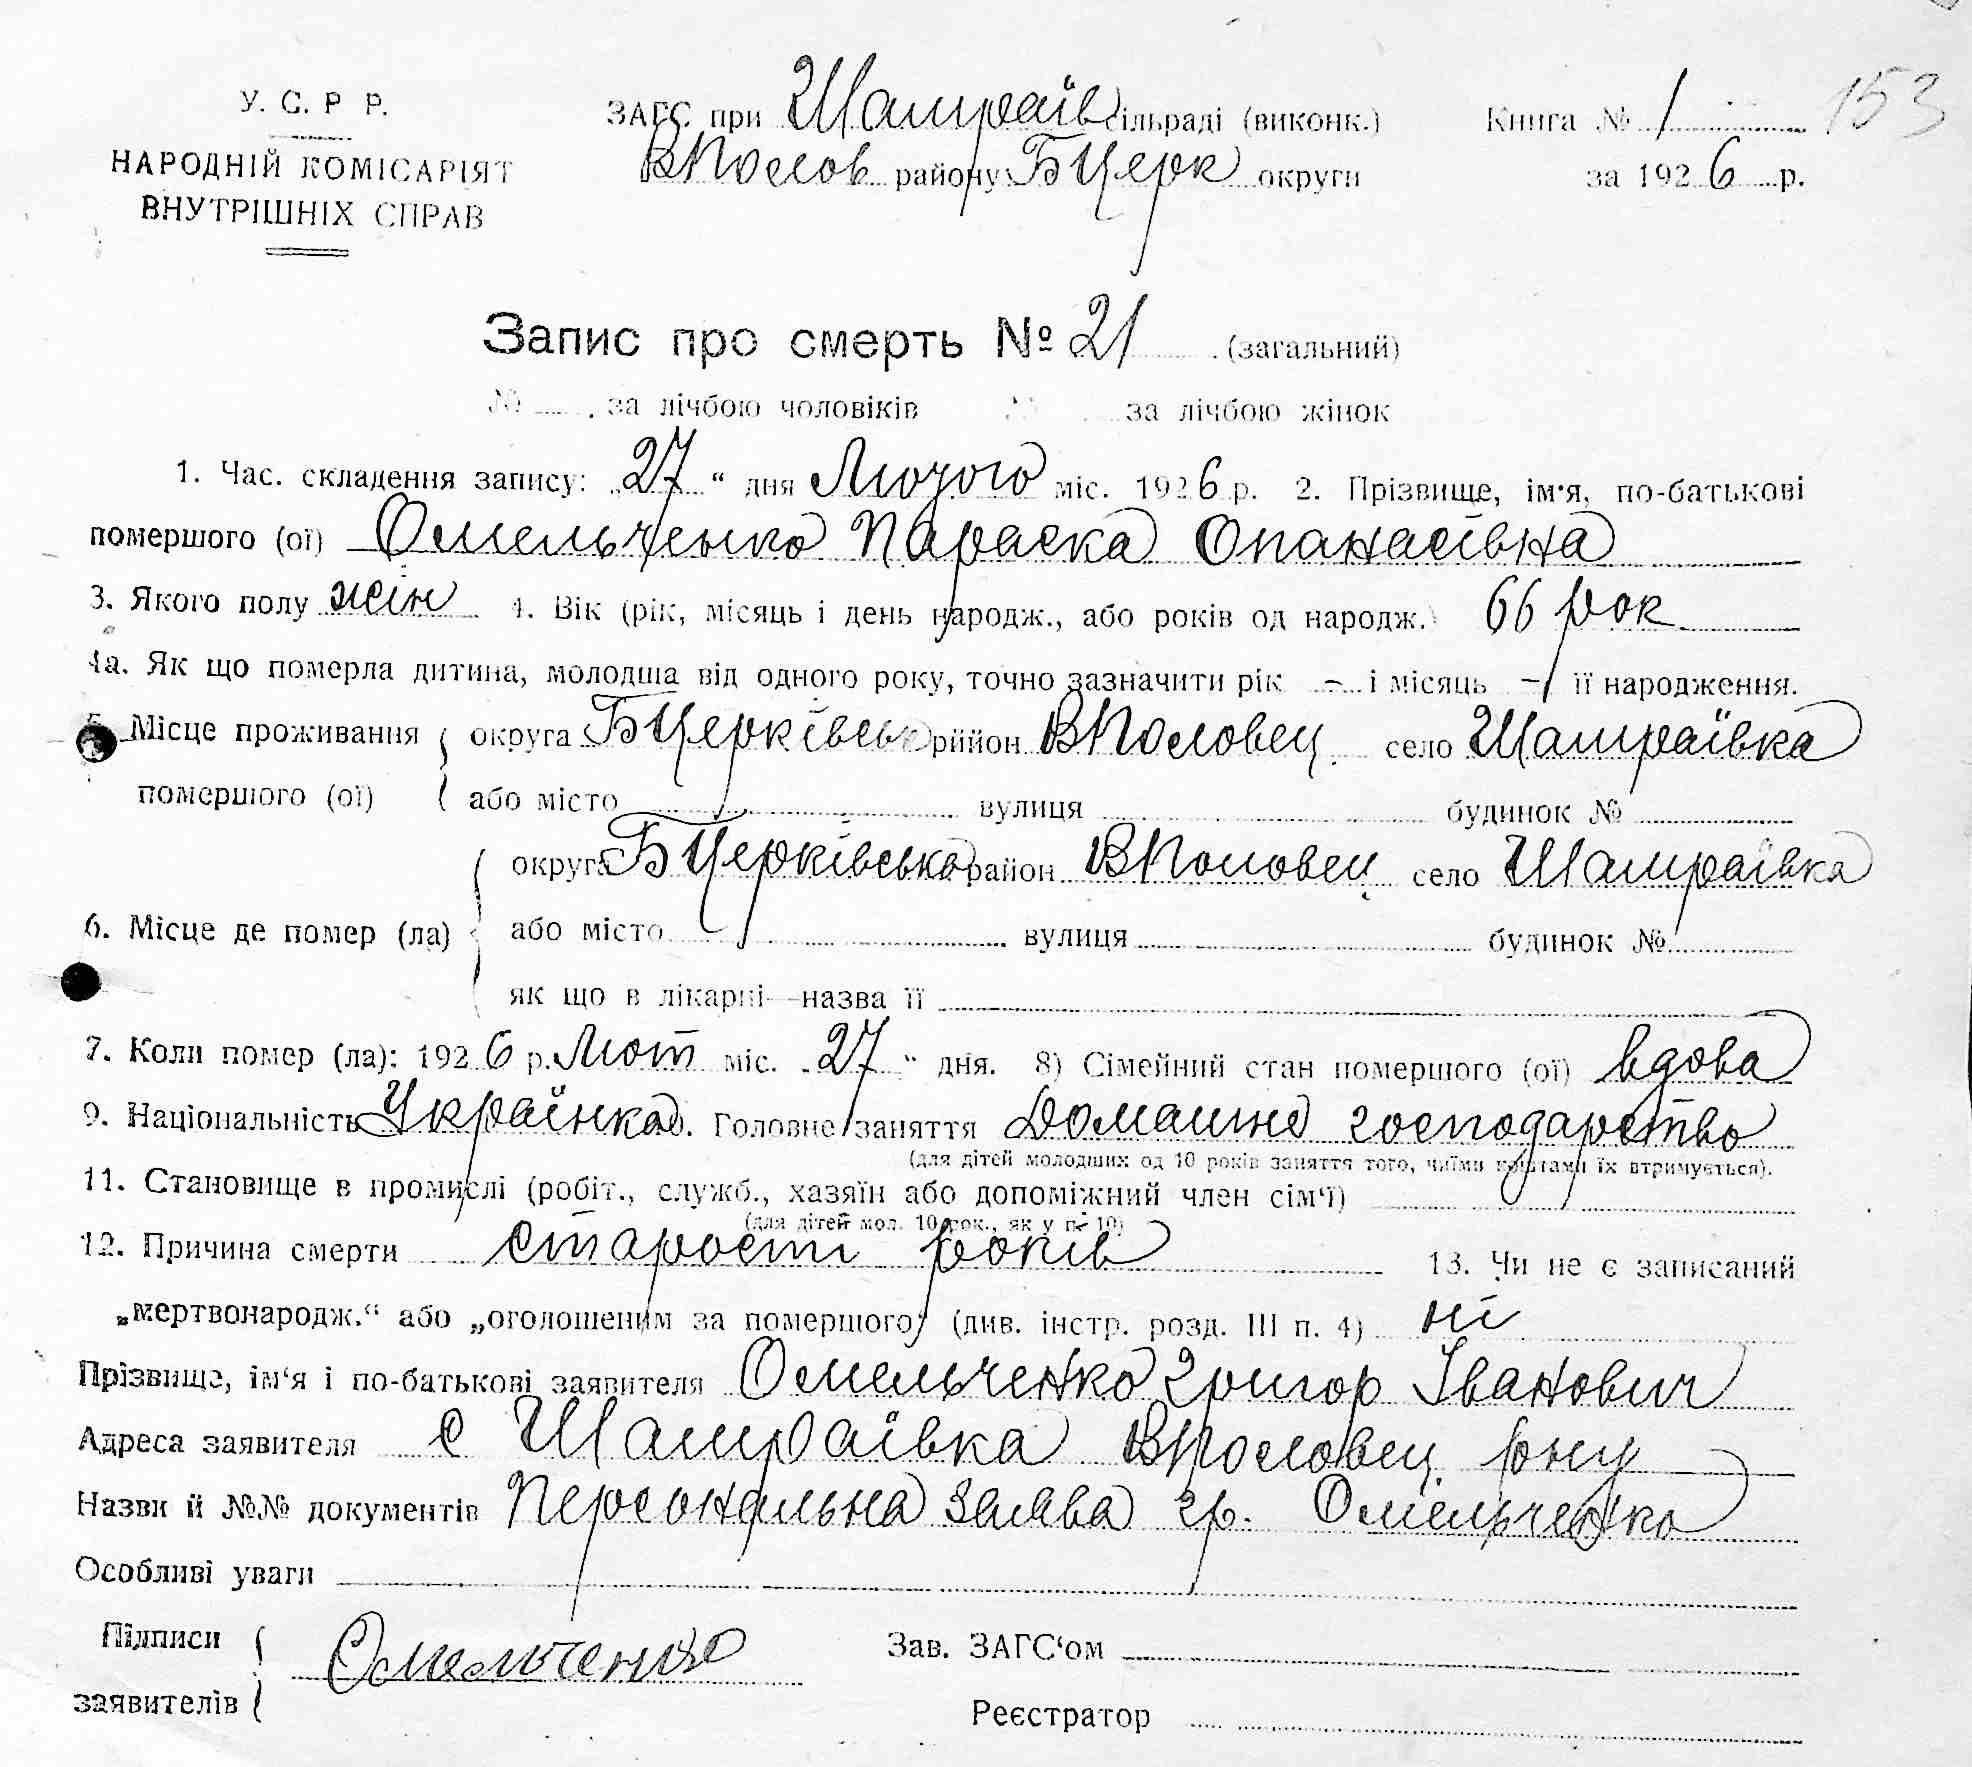 У. С. Р Р.
НАРОДНІЙ КОМІСАРІЯТ
ВНУТРІШНІХ СПРАВ
ЗАГС при Шамраїв сільраді (виконк.)
ВПолов району БЦерк округи
Книга № 1 153
за 1926 р.
Запис про смерть № 21 (загальний)
№ за лічбою чоловіків за лічбою жінок
1. Час. складення запису: „27“ дня Лютого міс. 1926 р. 2. Прізвище, ім'я, по-батькові
помершого (ої) Омельченко Параска Опанасівна
3. Якого полу жін 4. Вік (рік, місяць і день народж., або років од народж.) 66 рок
4а. Як що померла дитина, молодша від одного року, точно зазначити рік – і місяць – її народження.
5. Місце проживання округа БЦерківськ район ВПоловец. село Шамраївка
помершого (ої) або місто вулиця будинок №
округа БЦерківська район ВПоловец село Шамраївка
6. Місце де помер (ла) або місто вулиця будинок №
як що в лікарні—назва її
7. Коли помер (ла): 1926 р. Лют міс. „27“ дня. 8) Сімейний стан помершого (ої) вдова
9. Національність Українка 10. Головне заняття Домашнє господарство
(для дітей молодших од 10 років заняття того, чиїми коштами їх втримується).
11. Становище в промислі (робіт., служб., хазяїн або допоміжний член сім'ї)
(для дітей мол. 10 рок., як у п. 10)
12. Причина смерти старости років 13. Чи не є записаний
„мертвонародж.“ або „оголошеним за помершого“ (див. інстр. розд. III п. 4) ні
Прізвище, ім'я і по-батькові заявителя Омельченко Григор Іванович
Адреса заявителя с Шамраївка ВПоловец. рну
Назви й №№ документів Персональна заява гр. Омельченко
Особливі уваги
Підписи
заявителів
Омельченко
Зав. ЗАГС'ом
Реєстратор